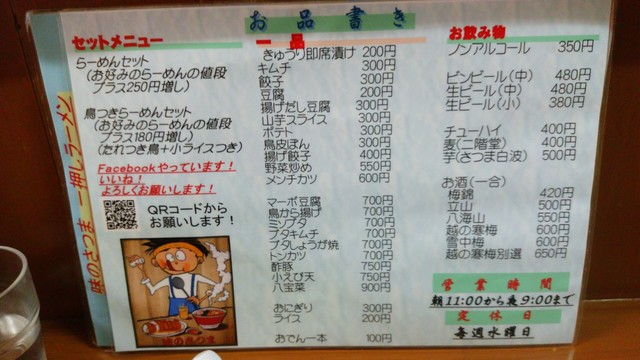 お品書き
セットメニュー
らーめんセット
(お好みのらーめんの値段
プラス250円増し)
鳥つきらーめんセット
(お好みのらーめんの値段
プラス180円増し)
(たれつき鳥+小ライスつき)
Facebookやっています!
いいね!
よろしくお願いします!
QRコードから
お願いします!
味のさつま
味のさつま 一押しラーメン
一品
きゅうり即席漬け 200円
キムチ 300円
餃子 300円
豆腐 200円
揚げだし豆腐 300円
山芋スライス 300円
ポテト 300円
鳥皮ぽん 300円
揚げ餃子 400円
野菜炒め 550円
メンチカツ 600円
マーボ豆腐 700円
鳥から揚げ 700円
ミソブタ 700円
ブタキムチ 700円
ブタしょうが焼 700円
トンカツ 700円
酢豚 750円
小えび天 750円
八宝菜 900円
おにぎり 300円
ライス 200円
おでん一本 100円
お飲み物
ノンアルコール 350円
ビンビール(中) 480円
生ビール(中) 480円
生ビール(小) 380円
チューハイ 400円
麦(二階堂) 400円
芋(さつま白波) 500円
お酒(一合)
梅錦 420円
立山 500円
八海山 550円
越の寒梅 600円
雪中梅 550円
越の寒梅別選 650円
営業時間
朝11:00から夜9:00まで
定休日
毎週水曜日